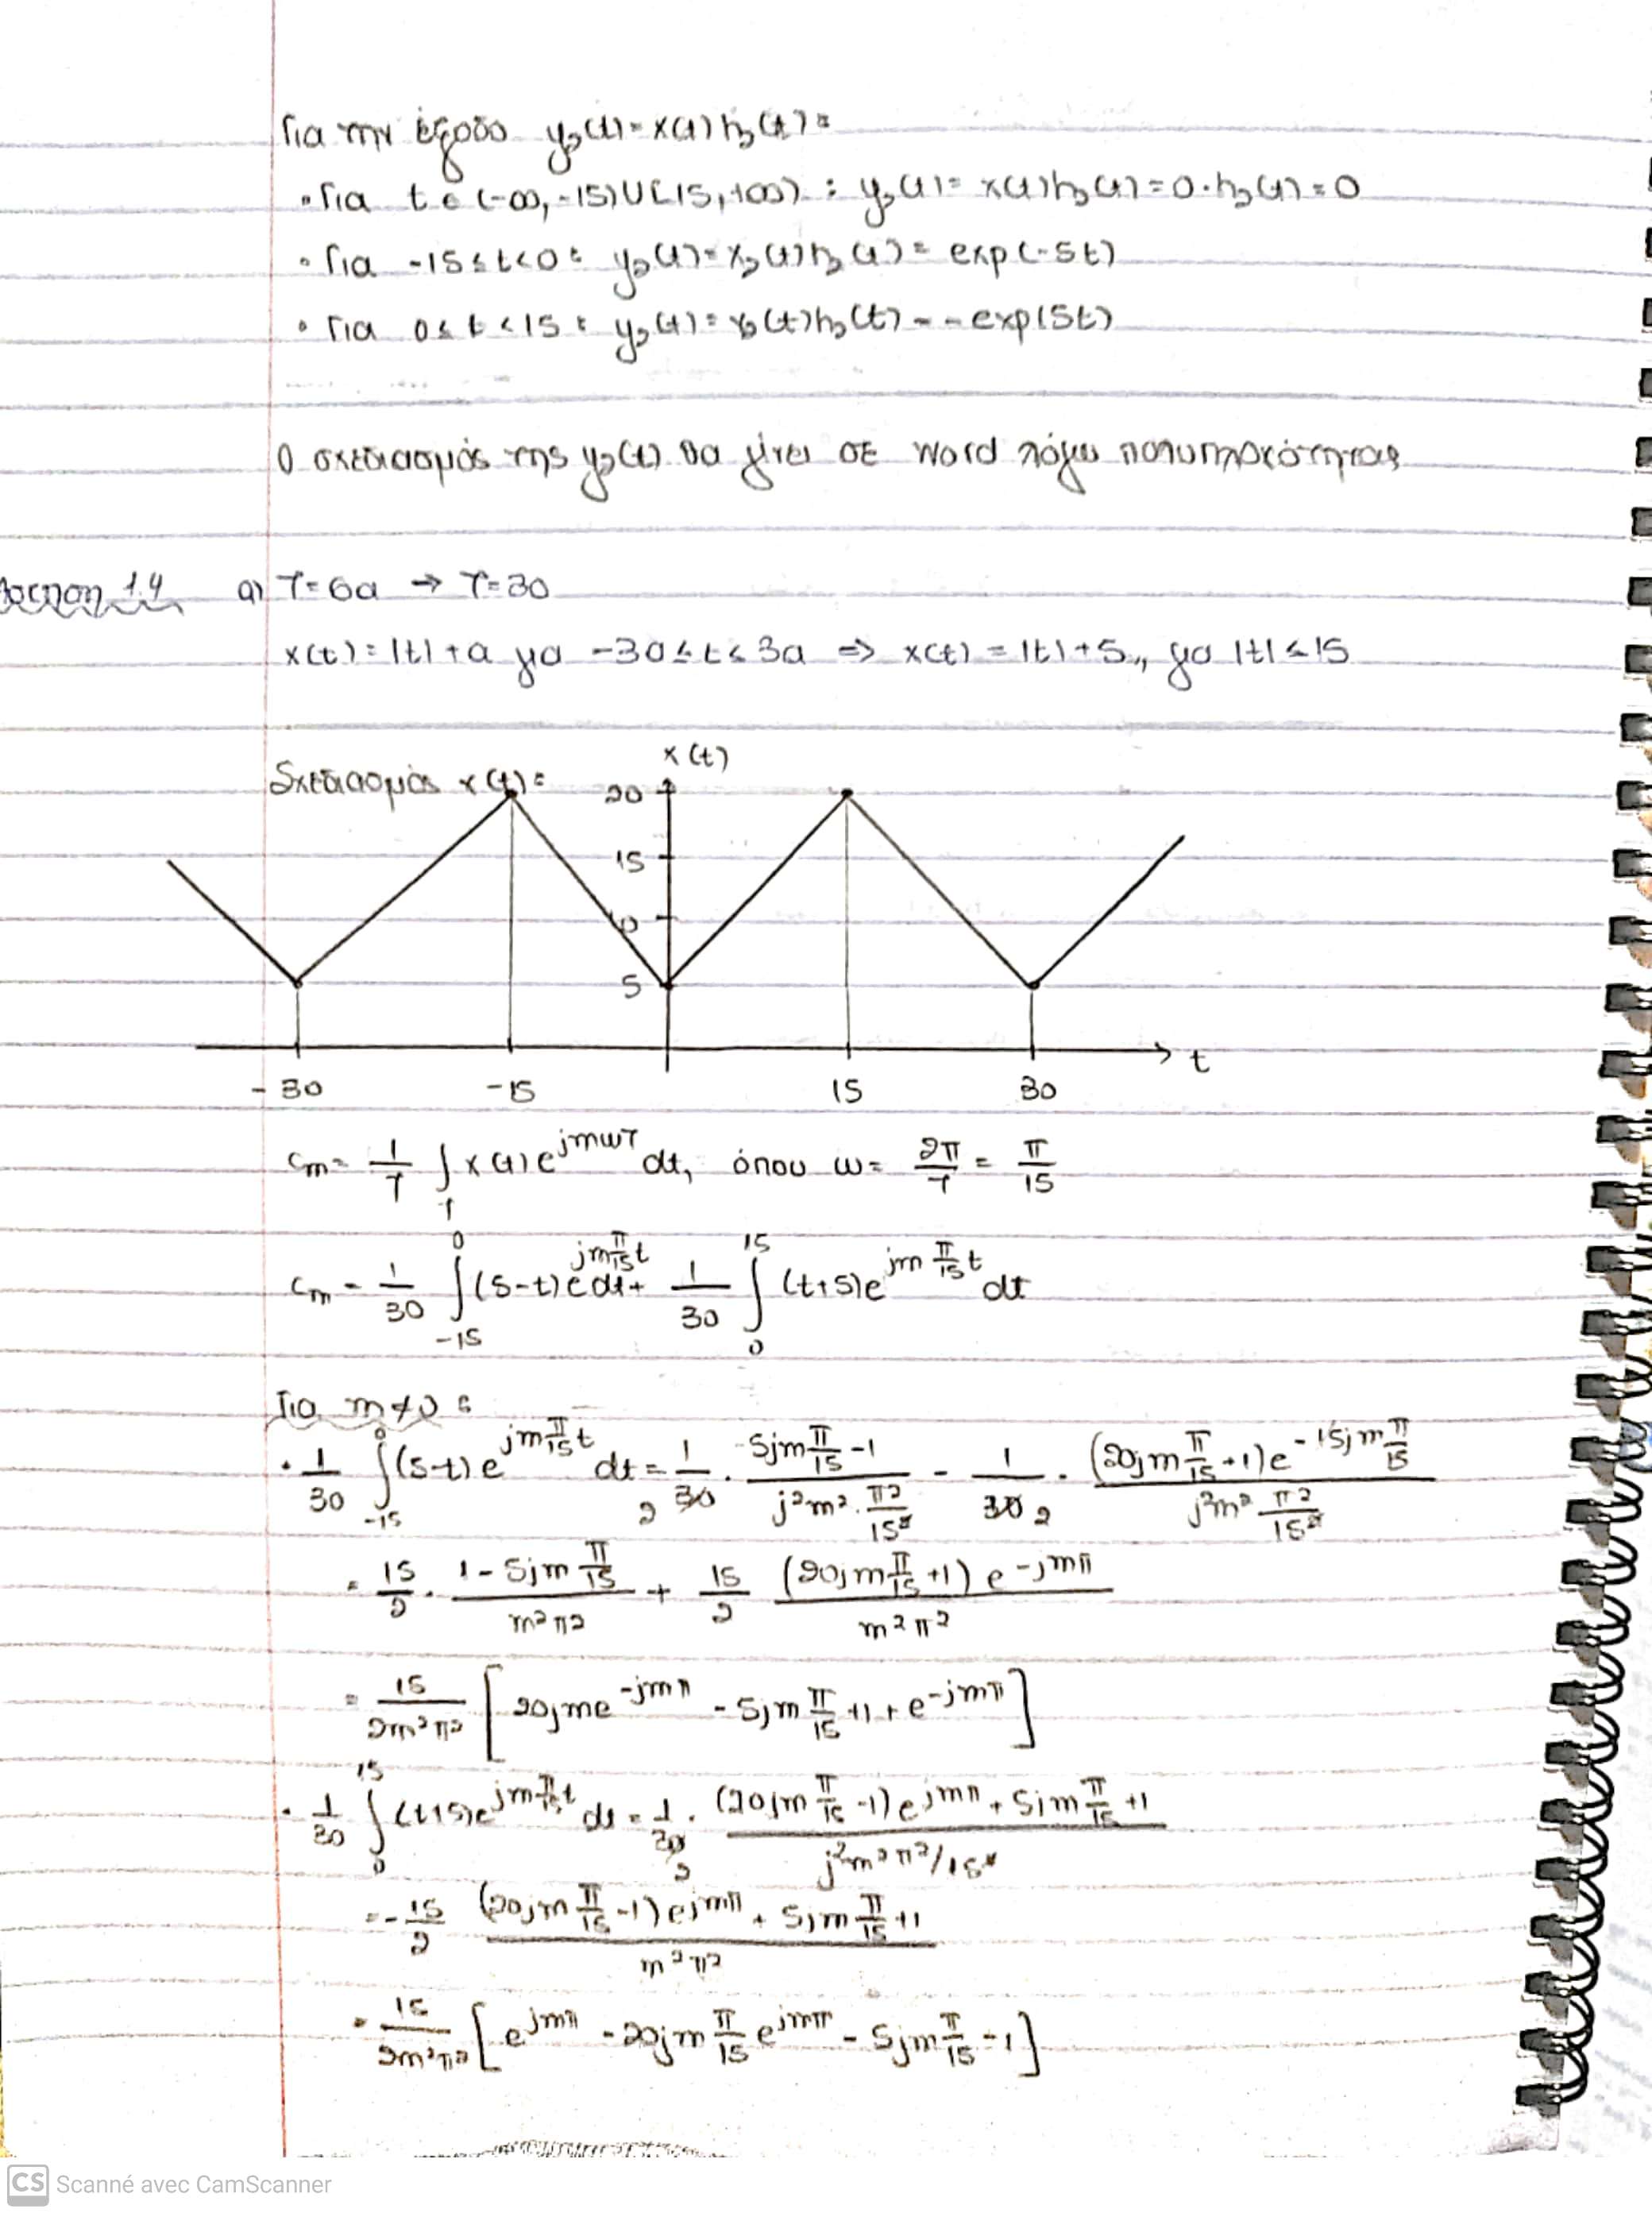 Για την έξοδο y₃(t) = x(t)h₃(t):
• Για t ∈ (-∞, -15)∪[15, +∞) : y₃(t) = x(t)h₃(t) = 0·h₃(t) = 0
• Για -15 ≤ t < 0 : y₃(t) = x₃(t)h₃(t) = exp(-5t)
• Για 0 ≤ t < 15 : y₃(t) = x₃(t)h₃(t) = -exp(5t)
Ο σχεδιασμός της y₃(t) θα γίνει σε Word λόγω πολυπλοκότητας
Άσκηση 1.4 α) T=6a → T=30
x(t) = |t| + a για -3a ≤ t ≤ 3a ⇒ x(t) = |t| + 5, για |t| ≤ 15
x(t)
Σχεδιασμός x(t):
20
15
10
5
t
-30 -15 15 30
cm = 1/T ∫_T x(t)e^{jmωT} dt, όπου ω = 2π/T = π/15
cm = 1/30 ∫_{-15}^{0} (5-t)e^{jm π/15 t} dt + 1/30 ∫_{0}^{15} (t+5)e^{jm π/15 t} dt
Για m≠0 :
• 1/30 ∫_{-15}^{0} (5-t)e^{jm π/15 t} dt = 1/30 · (5jm π/15 - 1)/(j²m² · π²/15²) - 1/30 · ((20jm π/15 + 1)e^{-15jm π/15})/(j²m² π²/15²)
= 15/2 · (1 - 5jm π/15)/(m²π²) + 15/2 ((20jm π/15 + 1)e^{-jmπ})/(m²π²)
= 15/(2m²π²) [20jme^{-jmπ} - 5jm π/15 + 1 + e^{-jmπ}]
• 1/30 ∫_{0}^{15} (t+5)e^{jm π/15 t} dt = 1/30 · ((20jm π/15 - 1)e^{jmπ} + 5jm π/15 + 1)/(j²m²π²/15²)
= -15/2 ((20jm π/15 - 1)e^{jmπ} + 5jm π/15 + 1)/(m²π²)
= 15/(2m²π²) [e^{jmπ} - 20jm π/15 e^{jmπ} - 5jm π/15 - 1]
CS Scanné avec CamScanner